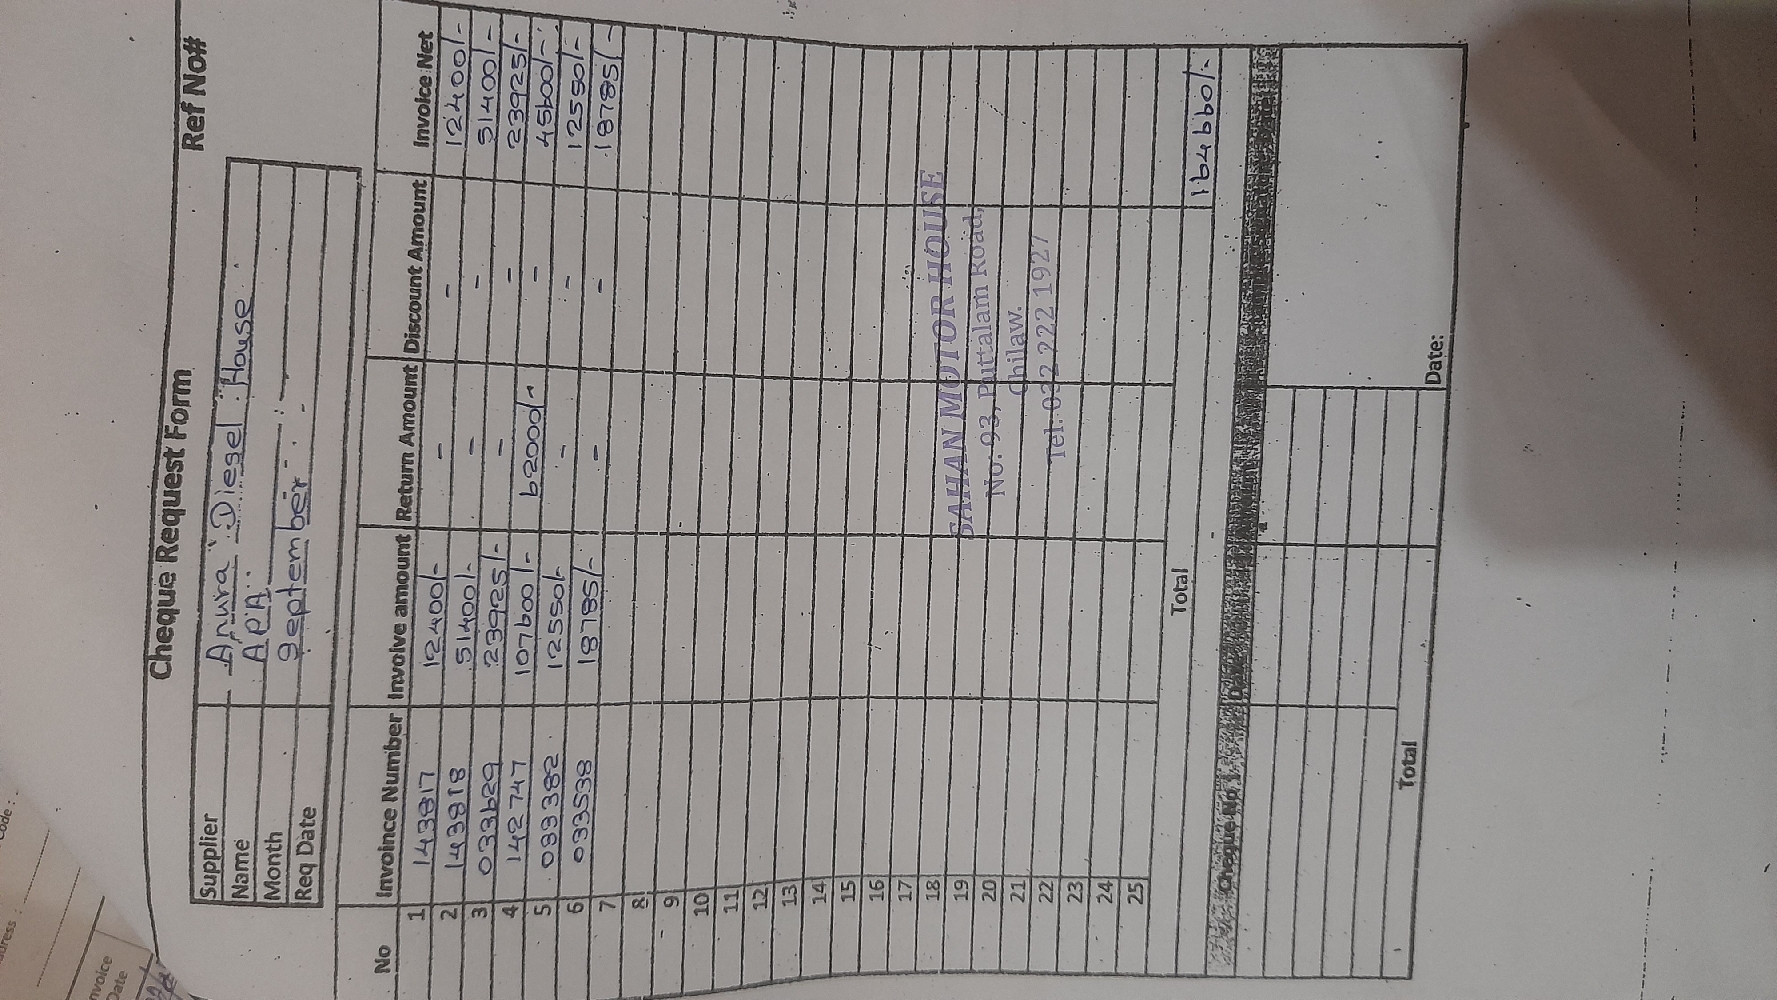 Cheque Request Form
Ref No#
Supplier Anura Diesel House
Name APA
Month September
Req Date
No Invoince Number Involve amount Return Amount Discount Amount Invoice Net
1 143817 12400/- - - 12400/-
2 143818 51400/- - - 51400/-
3 033629 23925/- - - 23925/-
4 142747 107600/- 62000/- - 45600/-
5 033382 12550/- - - 12550/-
6 033538 18785/- - - 18785/-
7
8
9
10
11
12
13
14
15
16
17
18
19
20
21
22
23
24
25
SAHAN MOTOR HOUSE
No. 93, Puttalam Road,
Chilaw.
Tel: 032 222 1927
Total 164660/-
Cheque No
Total
Date:
nvoice
Date